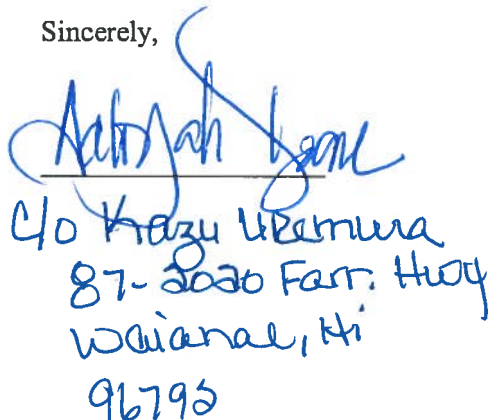 Sincerely,
Aaliyah
c/o Kazu Uemura
87-2020 Farr. Hwy
Waianae, Hi
96792